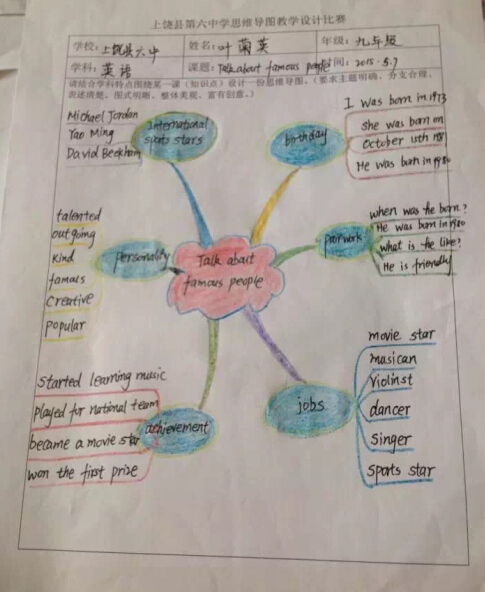 上饶县第六中学思维导图教学设计比赛
学校：上饶县六中
姓名：叶菊英
年级：九年级
学科：英语
课题：Talk about famous people
时间：2015.5.7
请结合学科特点围绕某一课（知识点）设计一份思维导图。（要求主题明确、分支合理、
表述清楚、图式明晰、整体美观、富有创意。）
Michael Jordan
Yao Ming
David Beckham
International
sports stars
birthday
I was born in 1973
she was born on
October 15th
He was born in 1980
talented
outgoing
kind
famous
Creative
popular
personality
Talk about
famous people
pairwork
when was he born?
He was born in 1980
what is he like?
He is friendly
started learning music
played for national team
became a movie star
won the first prize
achievement
jobs
movie star
musican
violinst
dancer
singer
sports star